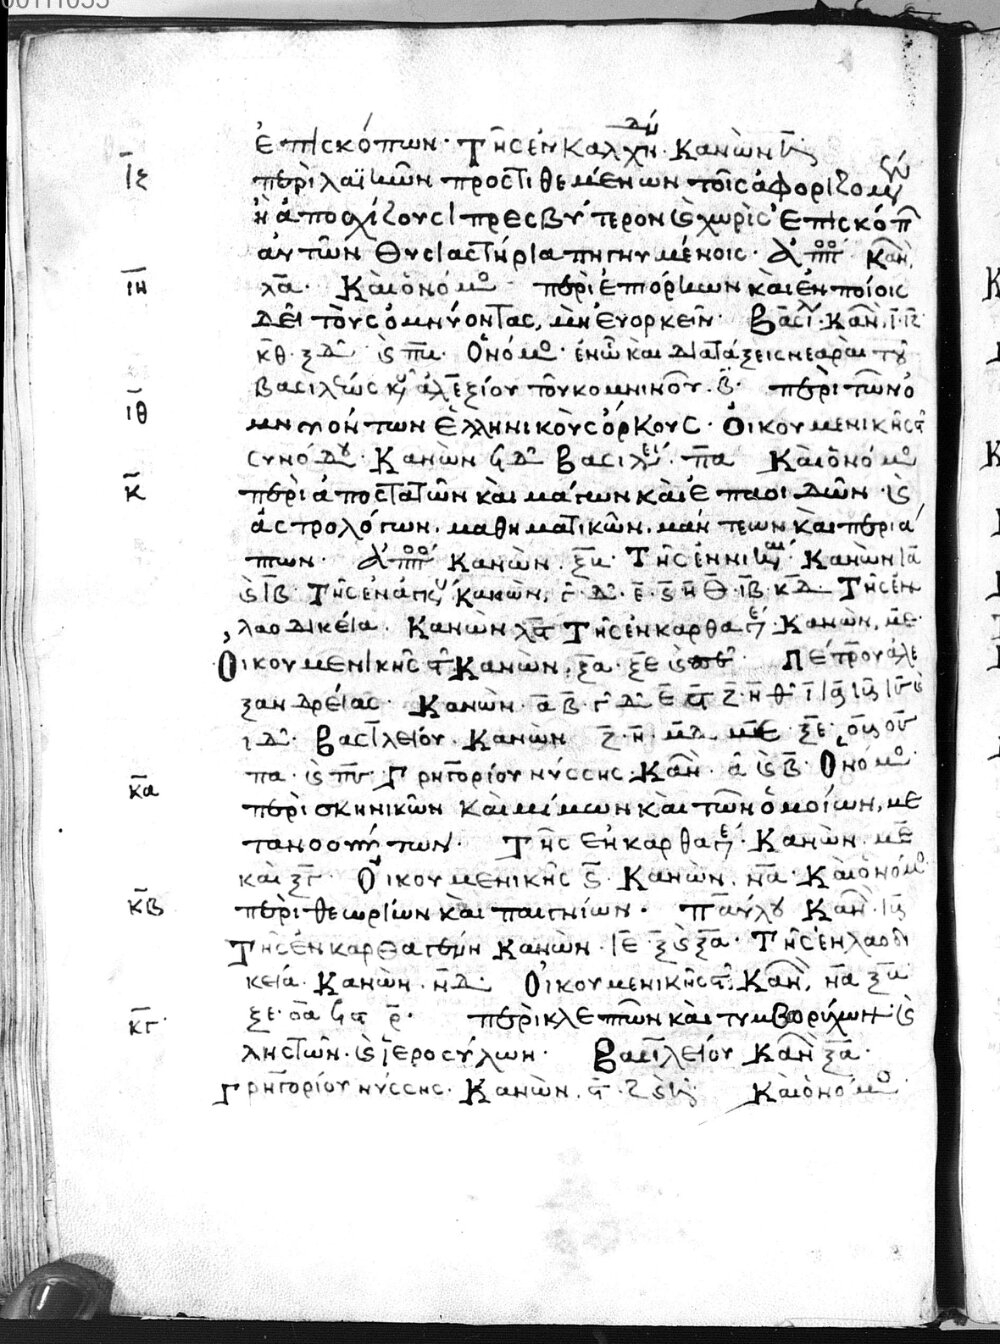 00111055
ἐπισκόπων· Τῆς ἐν Καλχη δό Κανὼν
ιζ περὶ λαϊκῶν προστιθεμένων τοῖς ἀφοριζομ
ἢ ἀποσχίζουσι πρεσβύτερον ις χωρὶς ἐπισκόπ
αὐτῶν θυσιαστήρια πηγνυμένοις· Ἀπ Καν
ιη λα· Καὶ ὁ νόμο περὶ ἐπιόρκων καὶ ἐν ποίοις
δεῖ τοὺς ὀμνύοντας, μὴ εὐορκεῖν· Βασιλ· Καν. ι· ιζ
κθ· ξδ ις πα· Ὁ νόμο· ἐν ὧ καὶ διατάξεις νεαραὶ τοῦ
βασιλέως κυ ἀλεξίου τοῦ κομνηνοῦ· β· περὶ τῶν ὀ
ιθ μνυόντων ἑλληνικοὺς ὅρκους· Οἰκουμενικῆς ϛ
συνόδου· Κανὼν ϟδ Βασιλεί· πα Καὶ ὁ νόμο
κ περὶ ἀποστατῶν καὶ μάγων καὶ ἐπαοιδῶν ις
ἀστρολόγων, μαθηματικῶν, μάντεων καὶ περιά
πτων· Ἀπ Κανὼν. ξα· Τῆς ἐν νικαί· Κανὼν ια
ις ιβ· Τῆς ἐν ἀγκύ Κανὼν, γ· δ· ε· ϛ η θ· ιβ· κδ· Τῆς ἐν
λαοδικεία· Κανὼν λϛ Τῆς ἐν καρθαγέ· Κανὼν, με·
Οἰκουμενικῆς ϛ Κανὼν, ξα· ξε ις Πέτρου ἀλε
ξανδρείας· Κανὼν· α β· γ δ ε ϛ ζ· η θ ι ια ιβ ιγ ις
ιδ· Βασιλείου· Κανὼν ζ· η· μδ ξε· οβ
πα· ις πγ Γρηγορίου νύσσης Καν· α ις β· Ὁ νόμο
κα περὶ σκηνικῶν καὶ μίμων καὶ τῶν ὁμοίων, με
τανοούντων· Τῆς ἐν καρθαγέ· Κανὼν· με
καὶ ξγ· Οἰκουμενικῆς ϛ· Κανὼν, να· Καὶ ὁ νόμο
κβ περὶ θεωρίων καὶ παιγνίων· Παύλου Καν· ιβ
Τῆς ἐν καρθαγένη Κανὼν· ιε ξ ις ξα· Τῆς ἐν λαοδι
κεία· Κανὼν· νδ· Οἰκουμενικῆς ϛ· Καν, να ξα
κγ ξε· οα ϟϛ ρ· περὶ κλεπτῶν καὶ τυμβορύχων ις
ληστῶν· ις ἱεροσύλων· Βασιλείου Καν ξα·
Γρηγορίου νύσσης· Κανὼν. ϛ· ζ ις Καὶ ὁ νόμο